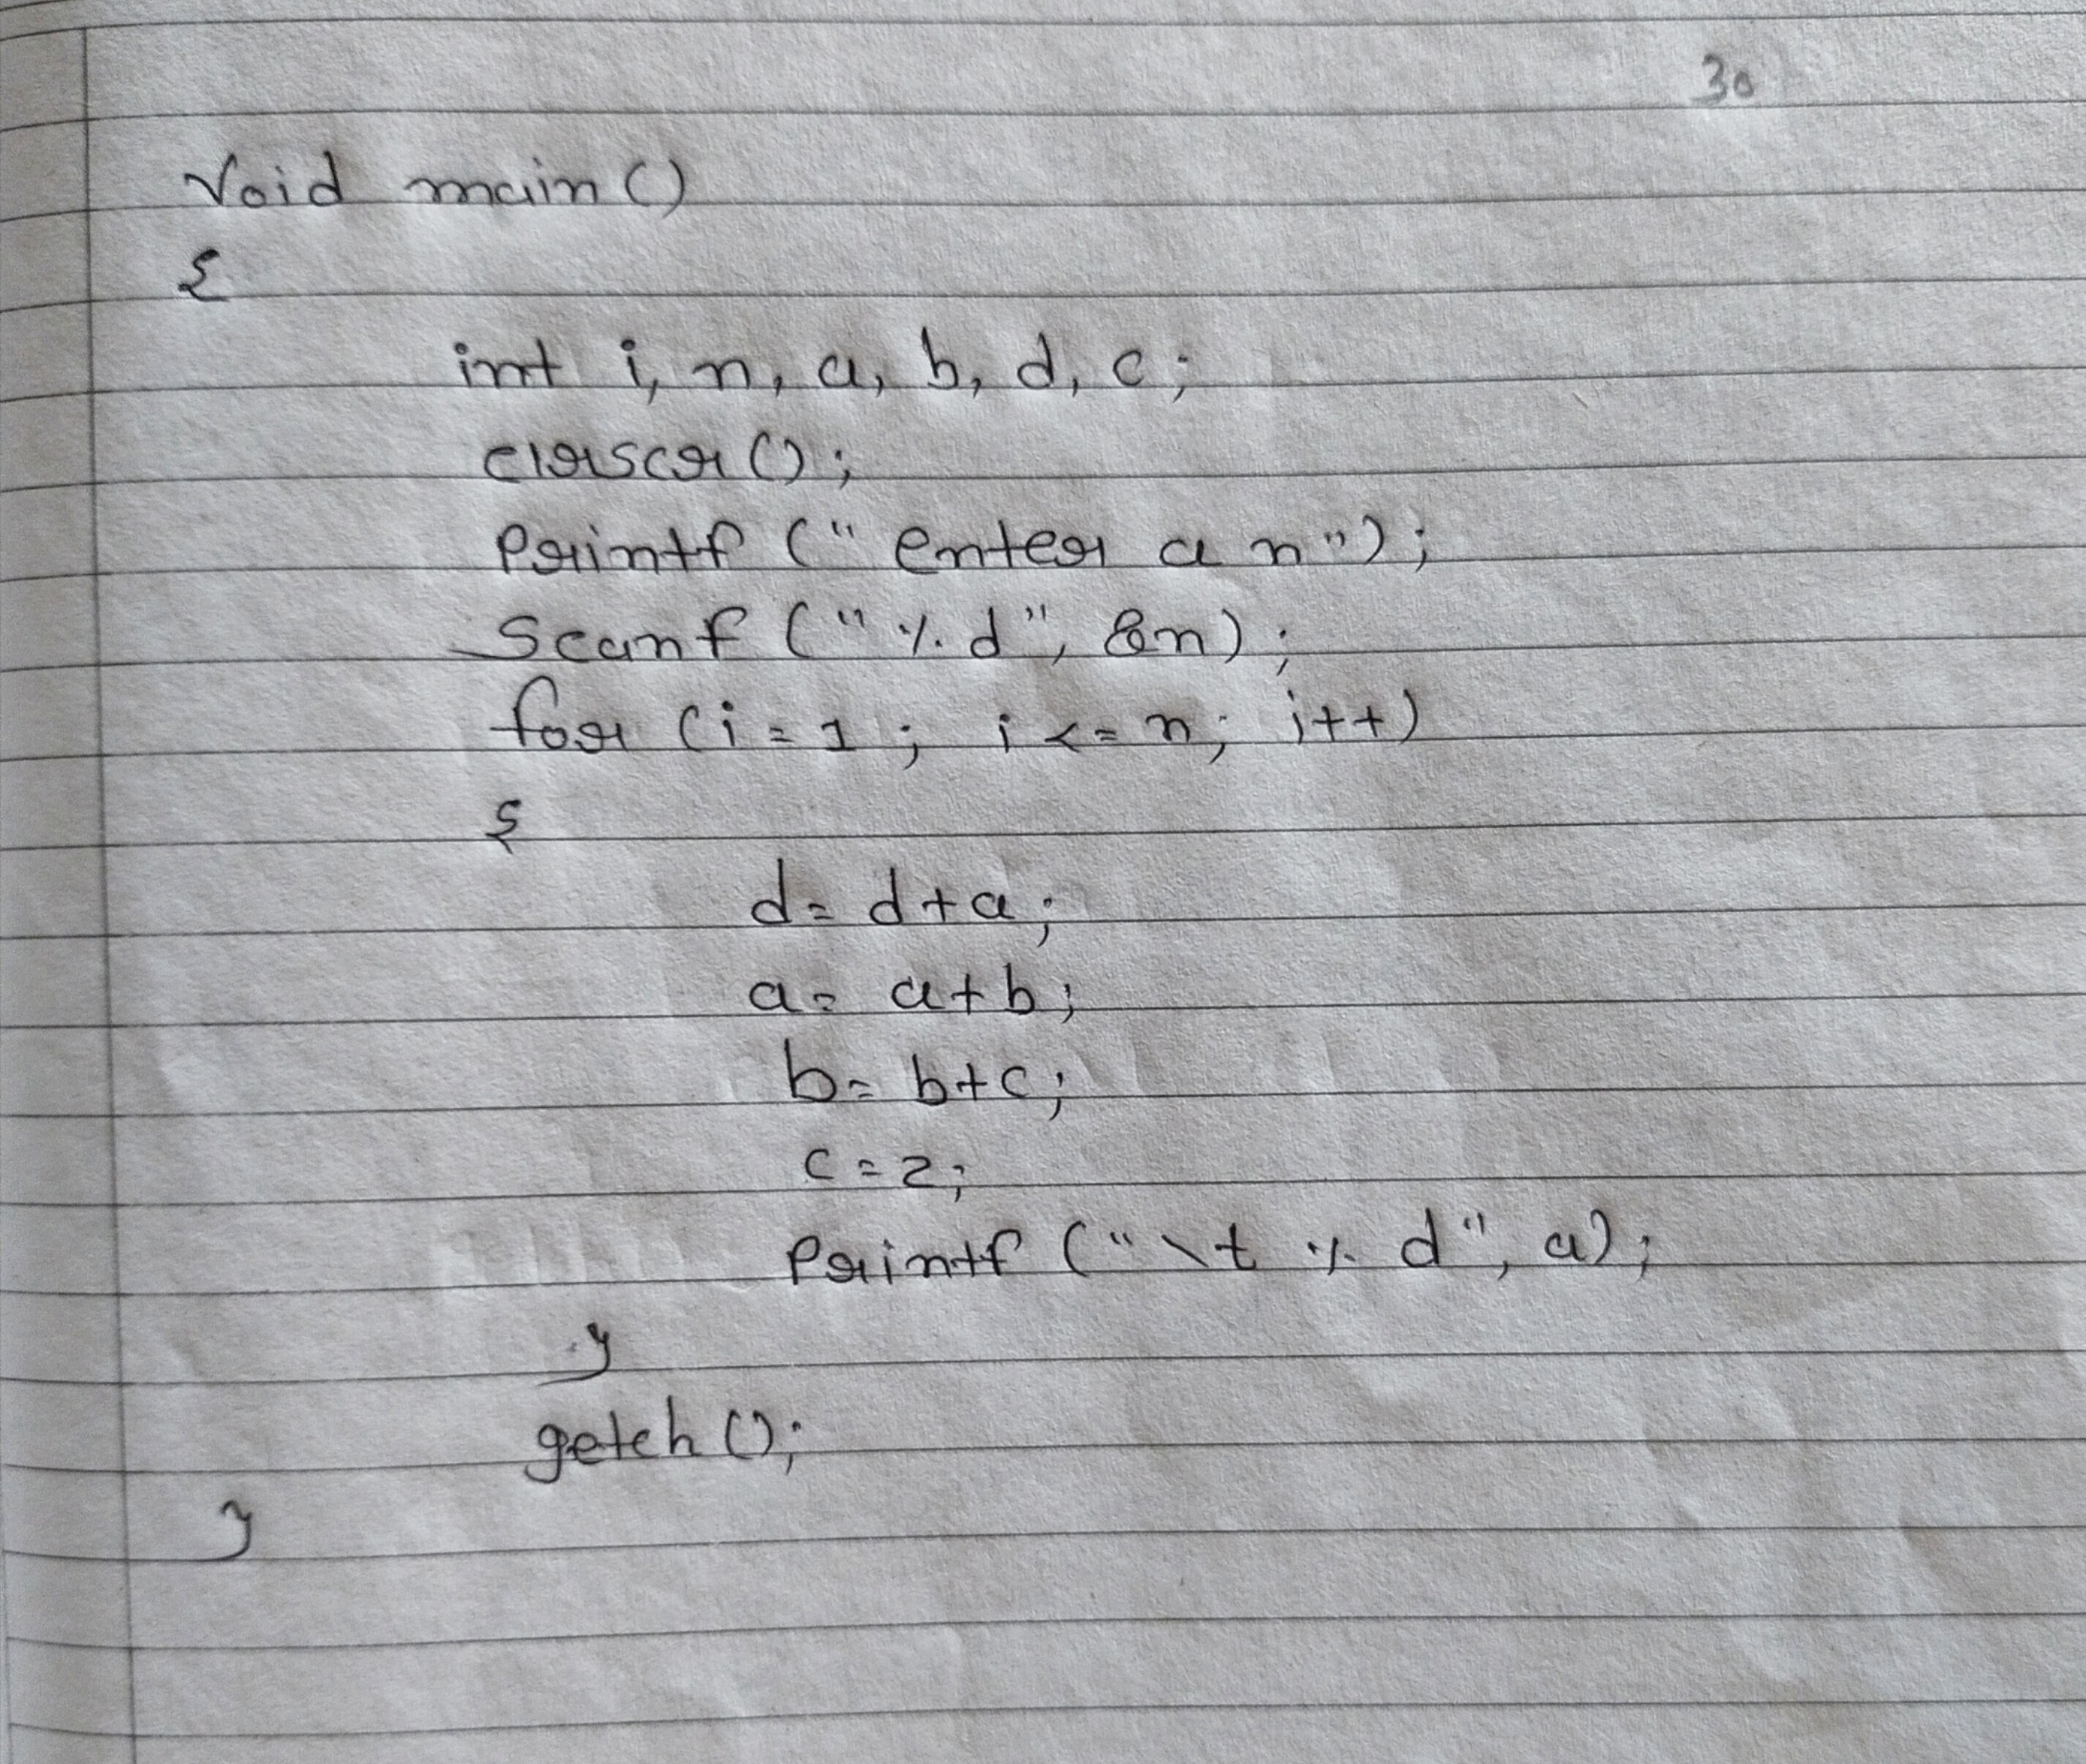 30
Void main()
{
int i, n, a, b, d, c;
clrscr();
Printf (" enter a n");
Scanf ("%d", &n);
for (i=1; i<=n; i++)
{
d= d+a;
a= a+b;
b= b+c;
c=2;
Printf ("\t %d", a);
}
getch();
}